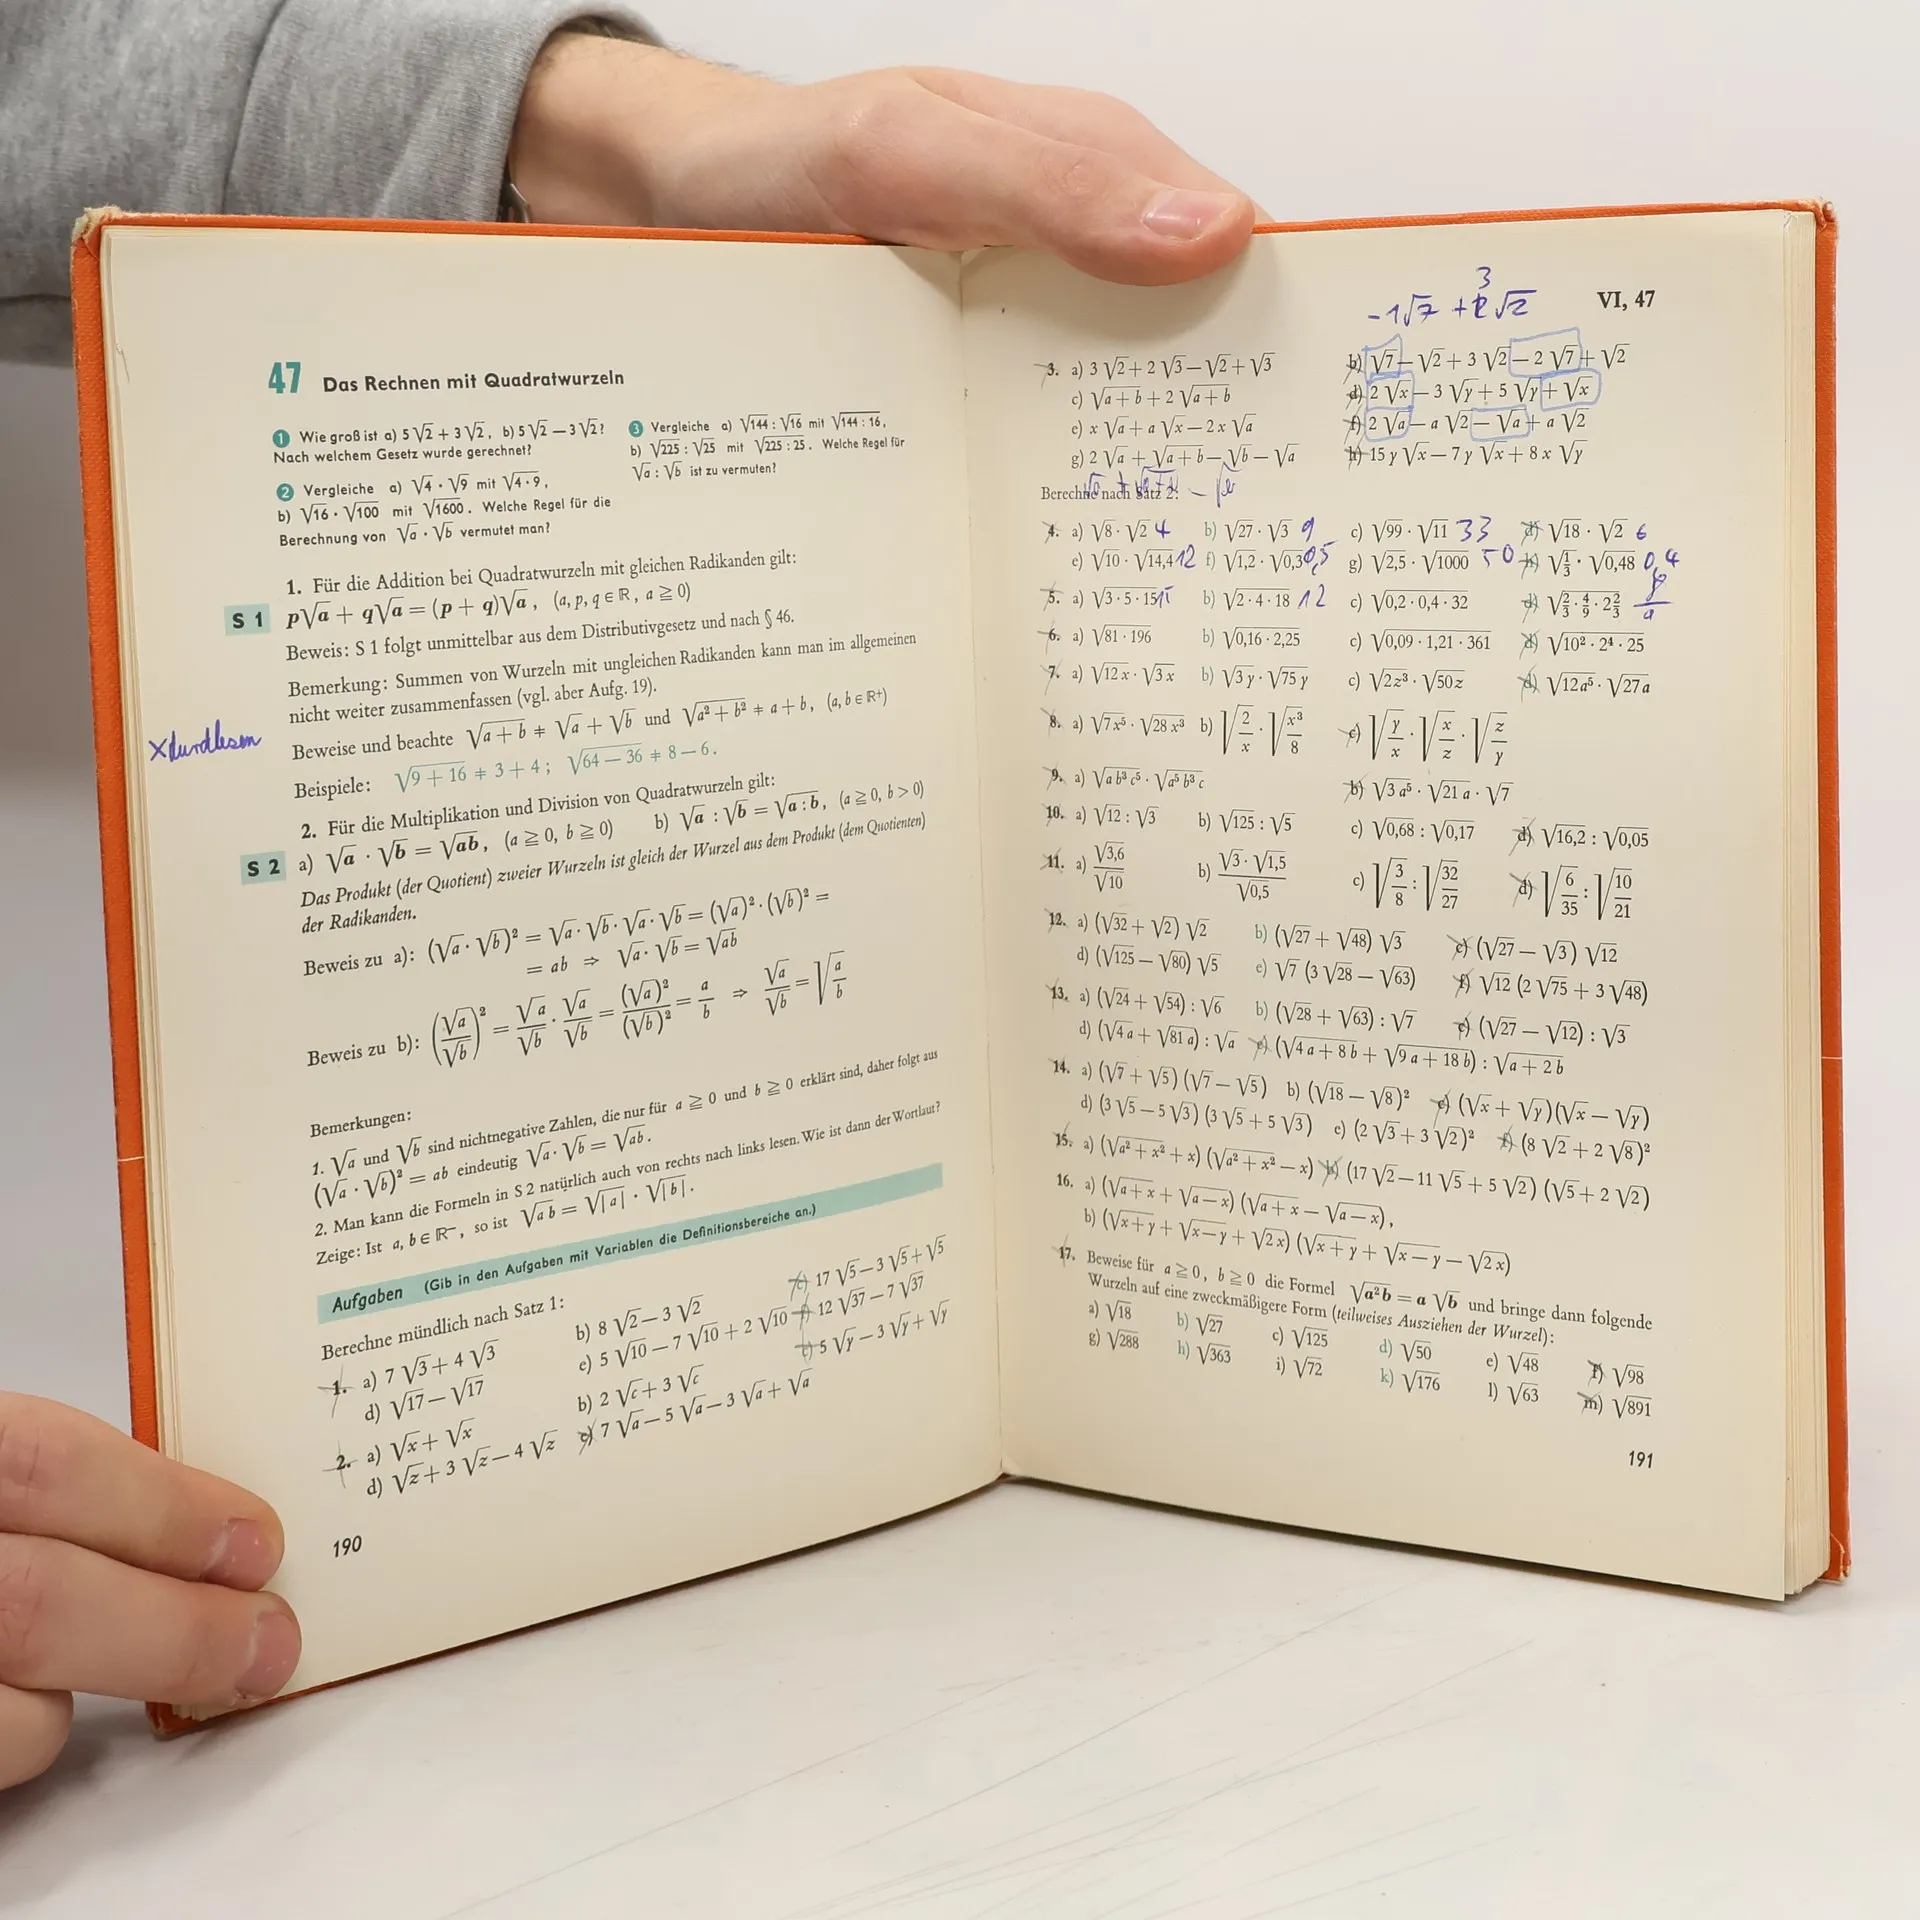 47 Das Rechnen mit Quadratwurzeln
1 Wie groß ist a) 5 √2 + 3 √2, b) 5 √2 — 3 √2?
Nach welchem Gesetz wurde gerechnet?
2 Vergleiche a) √4 · √9 mit √4 · 9,
b) √16 · √100 mit √1600. Welche Regel für die
Berechnung von √a · √b vermutet man?
3 Vergleiche a) √144 : √16 mit √144 : 16,
b) √225 : √25 mit √225 : 25. Welche Regel für
√a : √b ist zu vermuten?
1. Für die Addition bei Quadratwurzeln mit gleichen Radikanden gilt:
S 1 p√a + q√a = (p + q)√a, (a, p, q ∈ ℝ, a ≧ 0)
Beweis: S 1 folgt unmittelbar aus dem Distributivgesetz und nach § 46.
Bemerkung: Summen von Wurzeln mit ungleichen Radikanden kann man im allgemeinen
nicht weiter zusammenfassen (vgl. aber Aufg. 19).
xdurchlesen
Beweise und beachte √a + b ≠ √a + √b und √a² + b² ≠ a + b, (a, b ∈ ℝ⁺)
Beispiele: √9 + 16 ≠ 3 + 4; √64 — 36 ≠ 8 — 6.
2. Für die Multiplikation und Division von Quadratwurzeln gilt:
S 2 a) √a · √b = √ab, (a ≧ 0, b ≧ 0) b) √a : √b = √a : b, (a ≧ 0, b > 0)
Das Produkt (der Quotient) zweier Wurzeln ist gleich der Wurzel aus dem Produkt (dem Quotienten)
der Radikanden.
Beweis zu a): (√a · √b)² = √a · √b · √a · √b = (√a)² · (√b)² =
= ab ⇒ √a · √b = √ab
Beweis zu b): (√a/√b)² = √a/√b · √a/√b = (√a)²/(√b)² = a/b ⇒ √a/√b = √a/b
Bemerkungen:
1. √a und √b sind nichtnegative Zahlen, die nur für a ≧ 0 und b ≧ 0 erklärt sind, daher folgt aus
(√a · √b)² = ab eindeutig √a · √b = √ab.
2. Man kann die Formeln in S 2 natürlich auch von rechts nach links lesen. Wie ist dann der Wortlaut?
Zeige: Ist a, b ∈ ℝ⁻, so ist √a b = √|a| · √|b|.
Aufgaben (Gib in den Aufgaben mit Variablen die Definitionsbereiche an.)
Berechne mündlich nach Satz 1:
1. a) 7 √3 + 4 √3 b) 8 √2 — 3 √2 c) 17 √5 — 3 √5 + √5
d) √17 — √17 e) 5 √10 — 7 √10 + 2 √10 f) 12 √37 — 7 √37
2. a) √x + √x b) 2 √c + 3 √c c) 5 √y — 3 √y + √y
d) √z + 3 √z — 4 √z e) 7 √a — 5 √a — 3 √a + √a
190
3
-1√7 + √2
VI, 47
3. a) 3 √2 + 2 √3 — √2 + √3 b) √7 — √2 + 3 √2 — 2 √7 + √2
c) √a + b + 2 √a + b d) 2 √x — 3 √y + 5 √y + √x
e) x √a + a √x — 2x √a f) 2 √a — a √2 — √a + a √2
g) 2 √a + √a + b — √b — √a h) 15 y √x — 7 y √x + 8 x √y
Berechne nach Satz 2:
4. a) √8 · √2 4 b) √27 · √3 9 c) √99 · √11 33 d) √18 · √2 6
e) √10 · √14,4 12 f) √1,2 · √0,3 0,5 g) √2,5 · √1000 50 h) √1/3 · √0,48 0,4
5. a) √3 · 5 · 15 15 b) √2 · 4 · 18 12 c) √0,2 · 0,4 · 32 d) √2/3 · 4/9 · 2 2/3 8/9
6. a) √81 · 196 b) √0,16 · 2,25 c) √0,09 · 1,21 · 361 d) √10² · 2⁴ · 25
7. a) √12 x · √3 x b) √3 y · √75 y c) √2z³ · √50z d) √12a⁵ · √27a
8. a) √7 x⁵ · √28 x³ b) √2/x · √x³/8 c) √y/x · √x/z · √z/y
9. a) √a b³ c⁵ · √a⁵ b³ c b) √3 a⁵ · √21 a · √7
10. a) √12 : √3 b) √125 : √5 c) √0,68 : √0,17 d) √16,2 : √0,05
11. a) √3,6/√10 b) √3 · √1,5/√0,5 c) √3/8 : √32/27 d) √6/35 : √10/21
12. a) (√32 + √2) √2 b) (√27 + √48) √3 c) (√27 — √3) √12
d) (√125 — √80) √5 e) √7 (3 √28 — √63) f) √12 (2 √75 + 3 √48)
13. a) (√24 + √54) : √6 b) (√28 + √63) : √7 c) (√27 — √12) : √3
d) (√4 a + √81 a) : √a e) (√4 a + 8 b + √9 a + 18 b) : √a + 2 b
14. a) (√7 + √5) (√7 — √5) b) (√18 — √8)² c) (√x + √y)(√x — √y)
d) (3 √5 — 5 √3) (3 √5 + 5 √3) e) (2 √3 + 3 √2)² f) (8 √2 + 2 √8)²
15. a) (√a² + x² + x) (√a² + x² — x) b) (17 √2 — 11 √5 + 5 √2) (√5 + 2 √2)
16. a) (√a + x + √a — x) (√a + x — √a — x),
b) (√x + y + √x — y + √2 x) (√x + y + √x — y — √2 x)
17. Beweise für a ≧ 0, b ≧ 0 die Formel √a² b = a √b und bringe dann folgende
Wurzeln auf eine zweckmäßigere Form (teilweises Ausziehen der Wurzel):
a) √18 b) √27 c) √125 d) √50 e) √48 f) √98
g) √288 h) √363 i) √72 k) √176 l) √63 m) √891
191